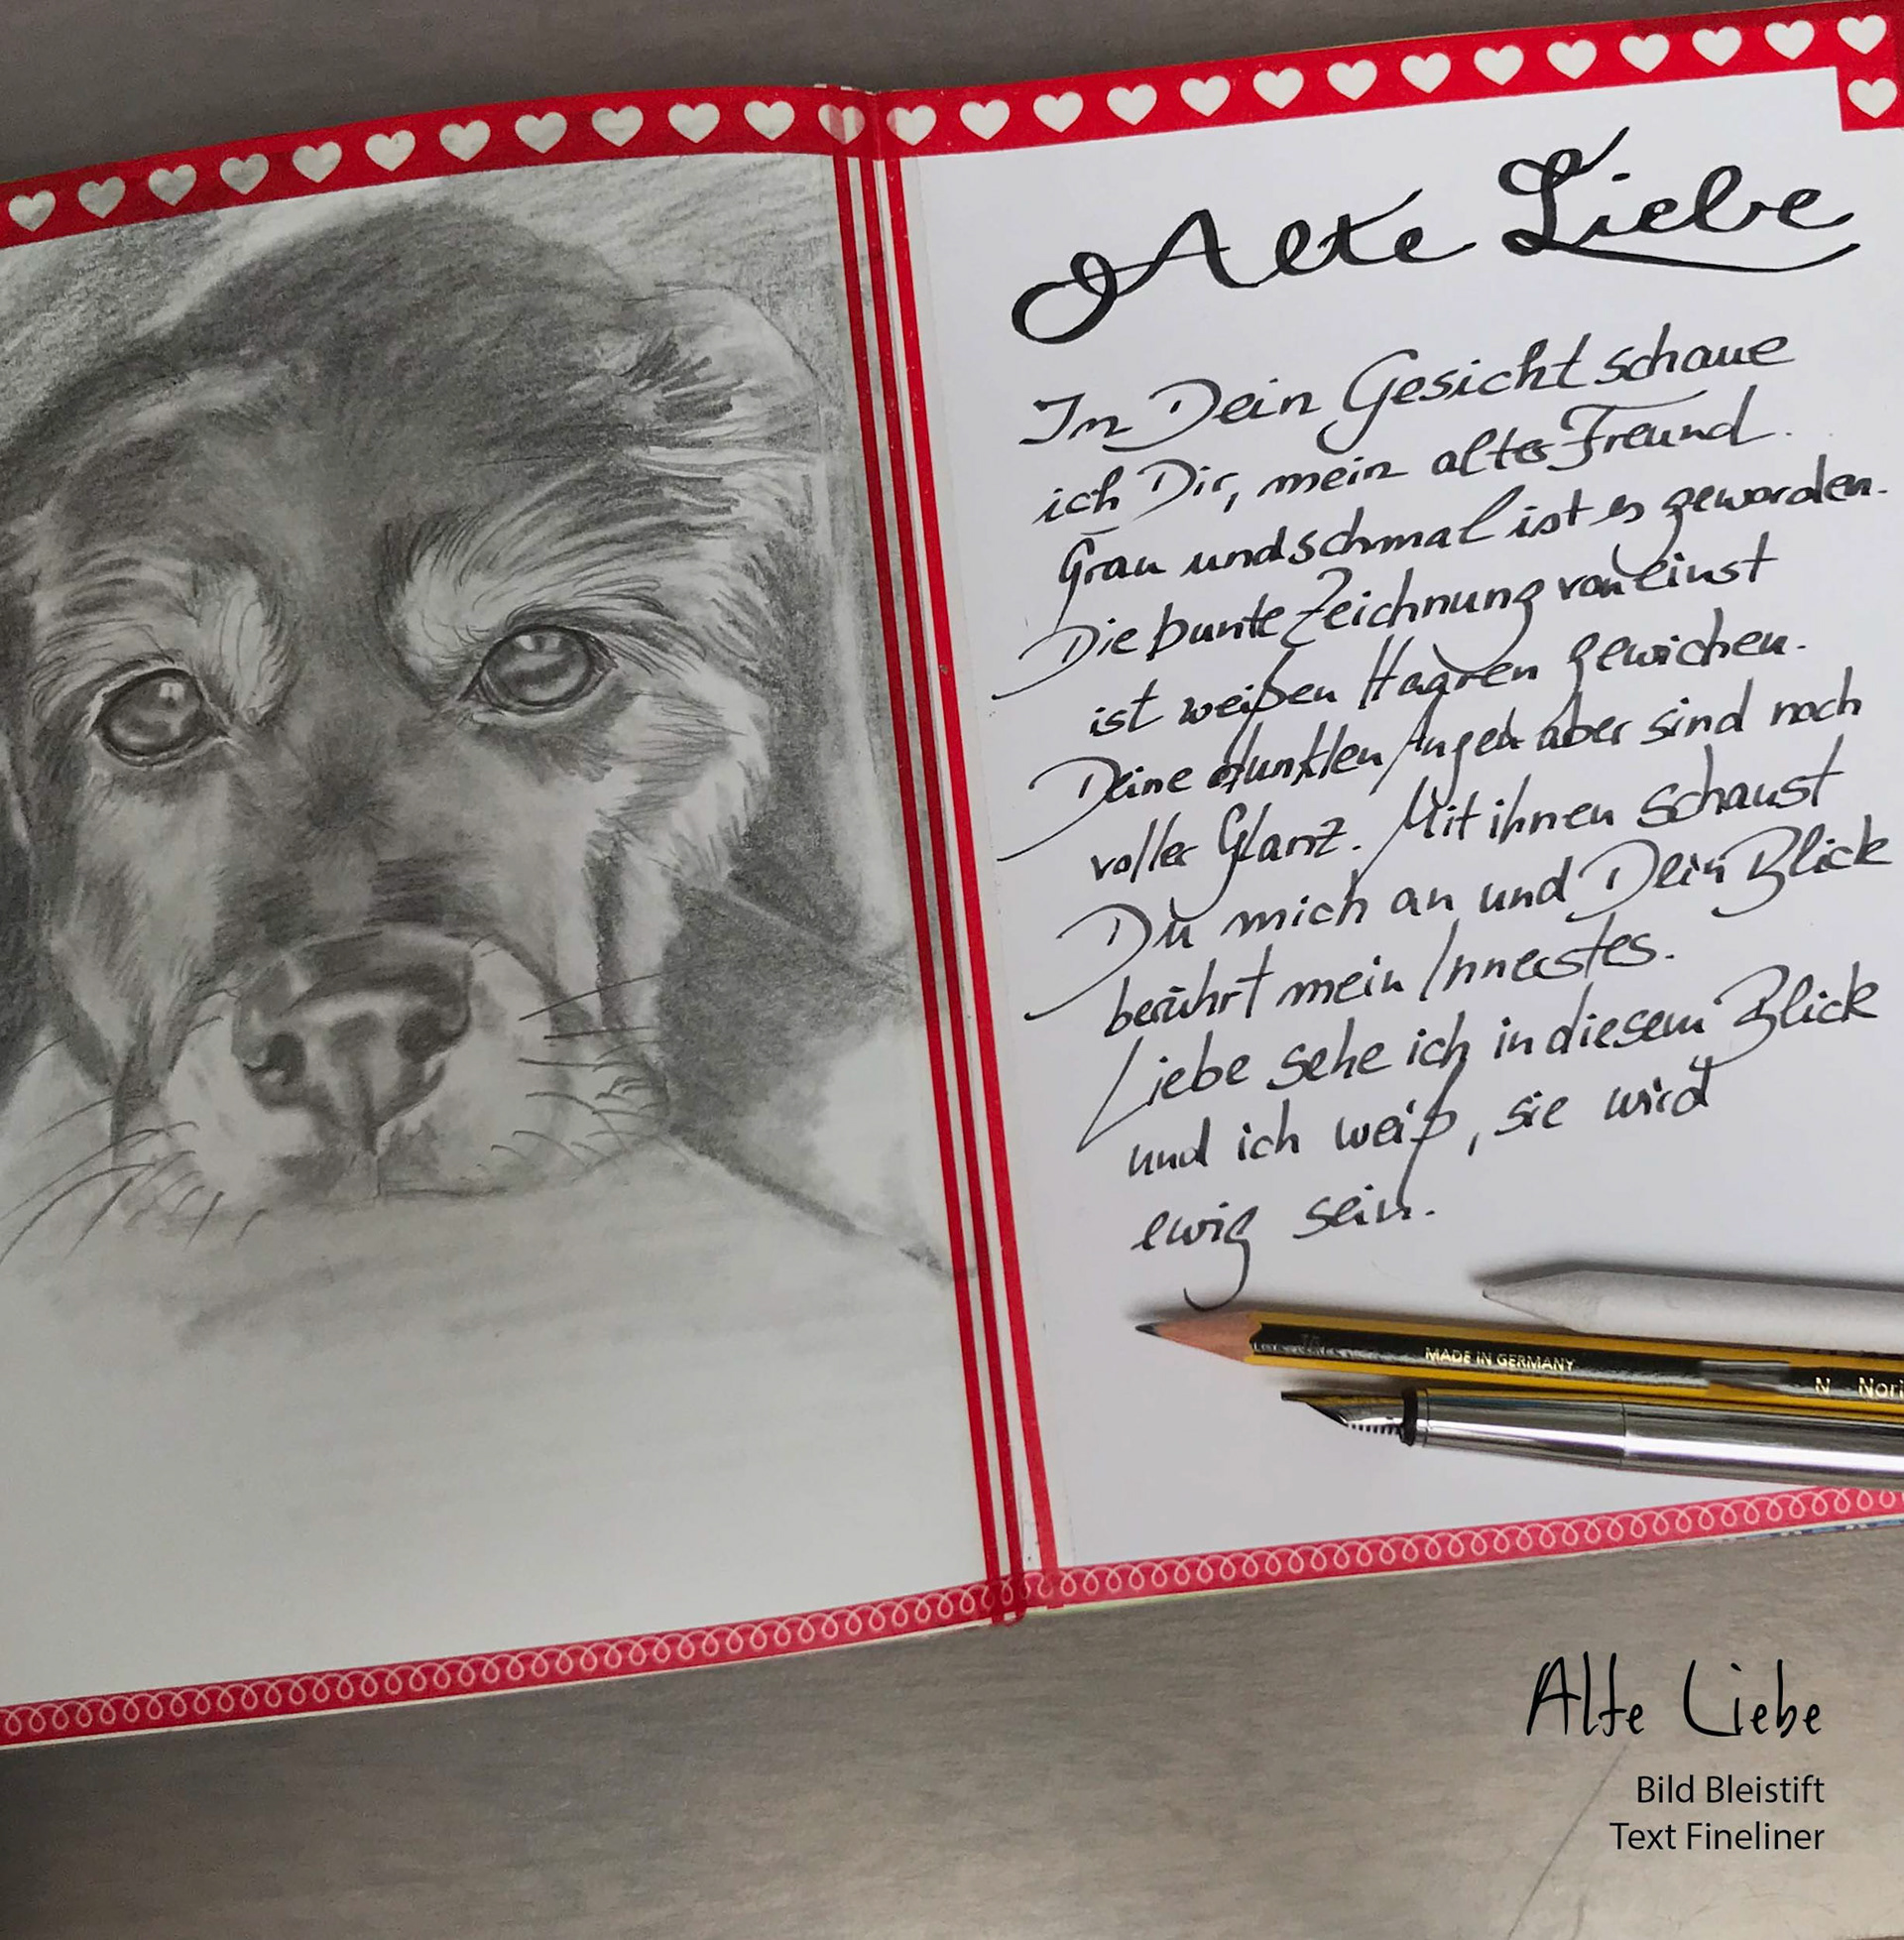 Alte Liebe
In Dein Gesicht schaue
ich Dir, mein alter Freund.
Grau und schmal ist es geworden.
Die bunte Zeichnung von einst
ist weißen Haaren gewichen.
Deine dunklen Augen aber sind noch
voller Glanz. Mit ihnen schaust
Du mich an und Dein Blick
berührt mein Innerstes.
Liebe sehe ich in diesem Blick
und ich weiß, sie wird
ewig sein.
MADE IN GERMANY
N Nori
Alte Liebe
Bild Bleistift
Text Fineliner